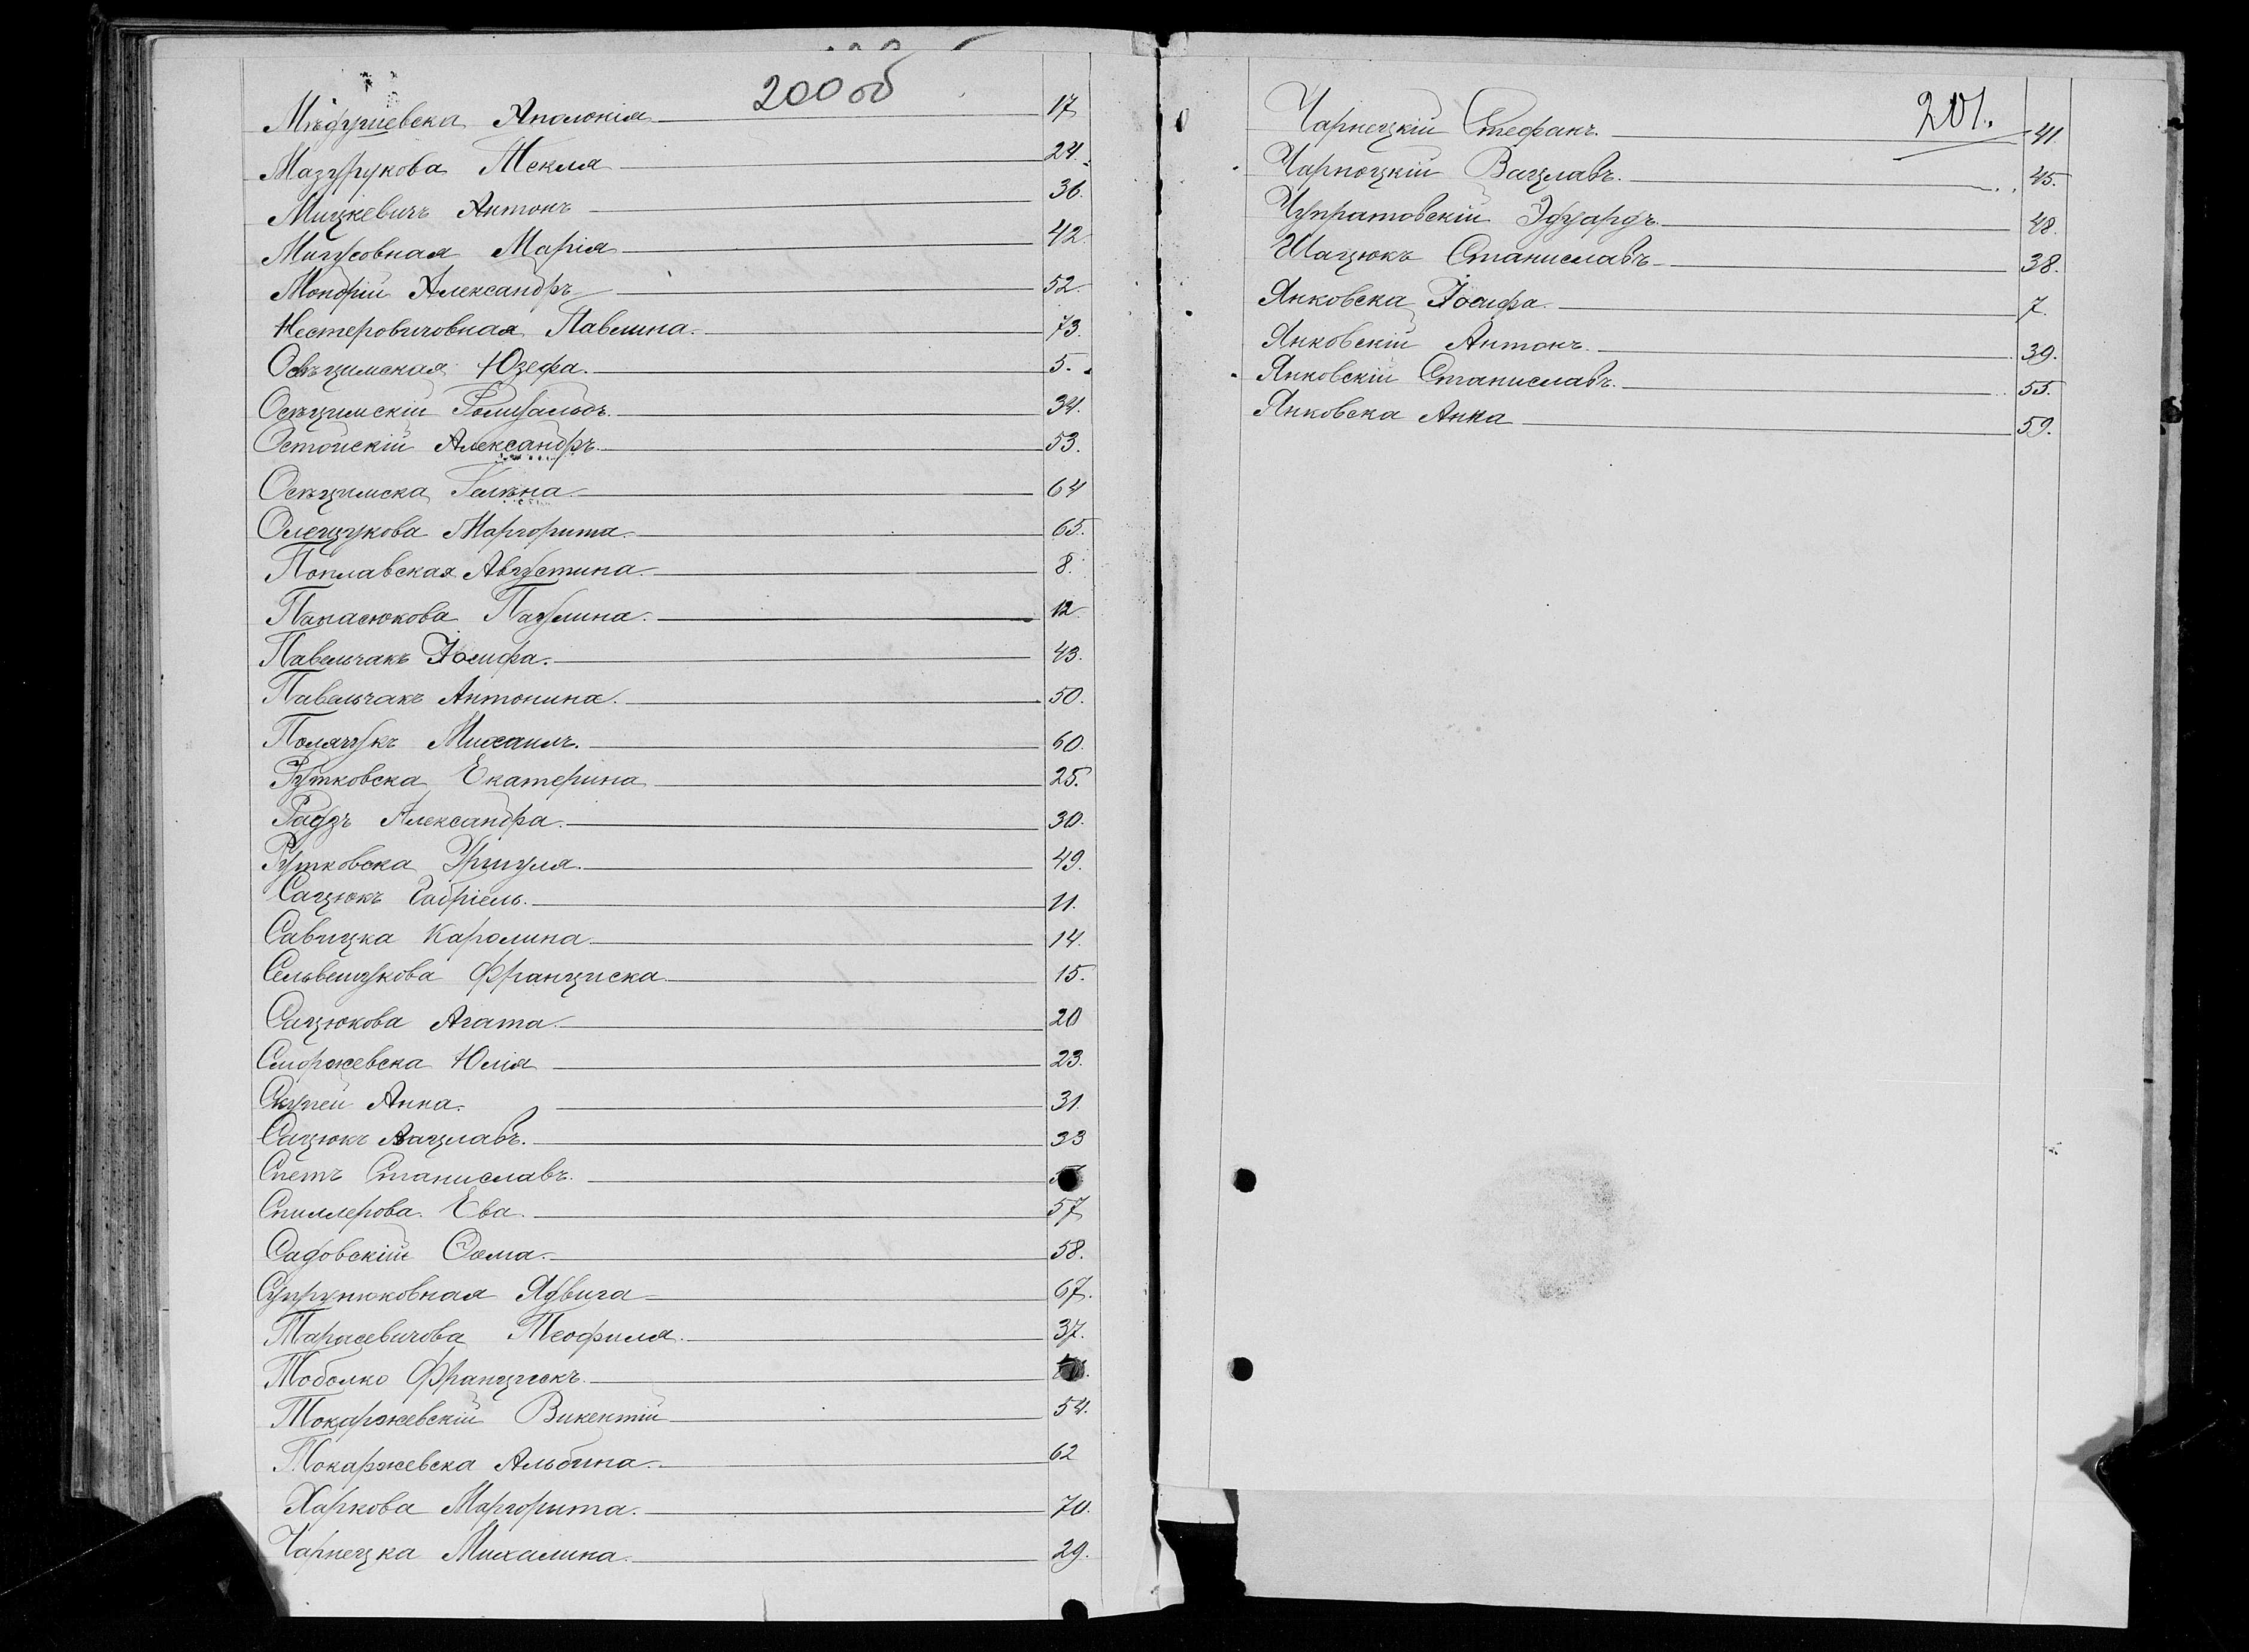 200 об
Мѣдушевска Аполонія 17
Мазурукова Текля 24.
Мицкевичъ Антонъ 36.
Марія 42.
Мондрій Александръ 52.
Нестеровичовная Павлина. 73.
Осѣцимская Юзефа. 5.
Осѣцимскій Ромуальдъ. 34.
Остойскій Александръ. 53.
Осѣцимска Гелена. 64
Олещукова Маргорита. 65.
Поплавская Августина. 8.
Панасюкова Паулина. 12
Павельчакъ Іосифа. 43.
Павельчакъ Антонина. 50.
Полячукъ Михаилъ. 60.
Рутковска Екатерина 25.
Радзь Александра. 30.
Рутковска Уршуля. 49.
Сацюкъ Габріель. 11.
Савицка Каролина. 14.
Сельвещукова Франциска. 15.
Сацюкова Агата. 20
Сморжевска Юлія 23.
Анна. 31.
Сацюкъ Вацлавъ. 33
Спетъ Станиславъ.
Спиллерова. Ева. 57
Садовскій Ѳома. 58.
Супрунюковная Ядвига 67.
Тарасевичова Теофиля. 37.
Тоболко Францискъ.
Токаржевскій Викентій 54.
Токаржевска Альбина. 62
Харкова Маргорита. 70.
Чарнецка Михалина. 29.
201.
Чарнецкій Стефанъ. 41.
Чарноцкій Вацлавъ. 45.
Чупратовскій Эдуардъ. 48.
Шацюкъ Станиславъ 38.
Янковска Іосифа. 7.
Янковскій Антонъ. 39.
Янковскій Станиславъ. 55.
Янковска Анна 59.